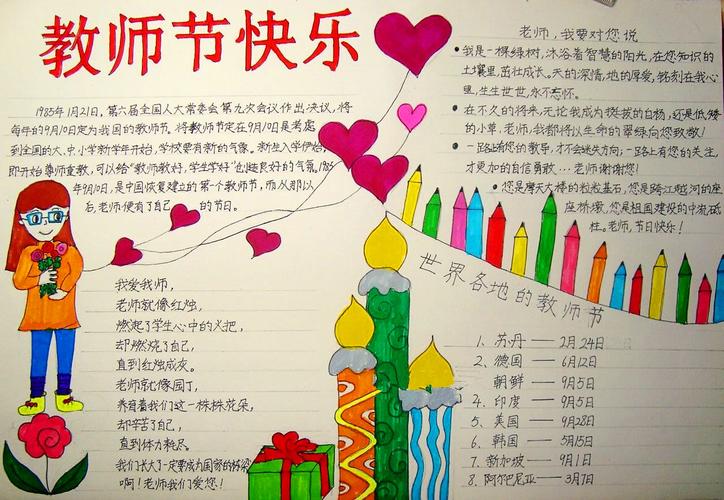 教师节快乐
1985年1月21日，第六届全国人大常委会第九次会议作出决议，将
每年的9月10日定为我国的教师节。将教师节定在9月10日是考虑
到全国的大、中、小学新学年开始，学校要有新的气象。新生入学伊始，
即开始尊师重教，可以给“教师教好，学生学好”创造良好的气氛。1985
年9月10日，是中国恢复建立的第一个教师节，而从那以
后，老师便有了自己的节日。
我爱我师，
老师就像红烛，
燃起了学生心中的火把，
却燃烧了自己，
直到红烛成灰。
老师就像园丁，
养育着我们这一株株花朵，
却辛苦了自己，
直到体力耗尽。
我们长大了一定要成为国家的栋梁
啊！老师我们爱您！
老师，我要对您说
●我是一棵绿树，沐浴着智慧的阳光，在您知识的
土壤里，茁壮成长。天的深情，地的厚爱，铭刻在我心
里，生生世世，永不忘怀。
●在不久的将来，无论我成为挺拔的白杨，还是低矮
的小草，老师，我都将以生命的翠绿向您致敬！
●一路上有您的教导，才不会迷失方向；一路上有您的关注，
才更加的自信勇敢…老师谢谢您！
●您是摩天大楼的粒粒基石，您是跨江越河的座
座桥墩，您是祖国建设的中流砥
柱。老师，节日快乐！
世界各地的教师节
1、苏丹——2月24日
2、德国——6月12日
朝鲜——9月5日
4、印度——9月5日
5、美国——9月28日
6、韩国——5月15日
7、新加坡——9月1日
8、阿尔巴尼亚——3月7日